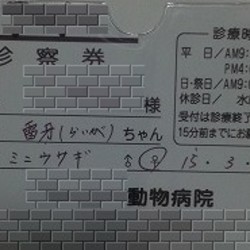 診察券
様
雷牙(らいが)ちゃん
ミニウサギ ♂ ♀ 15.3.
動物病院
診療時
平 日/AM9:
PM4:
日・祭日/AM9:
休診日/ 水
受付は診療終了
15分前までにお